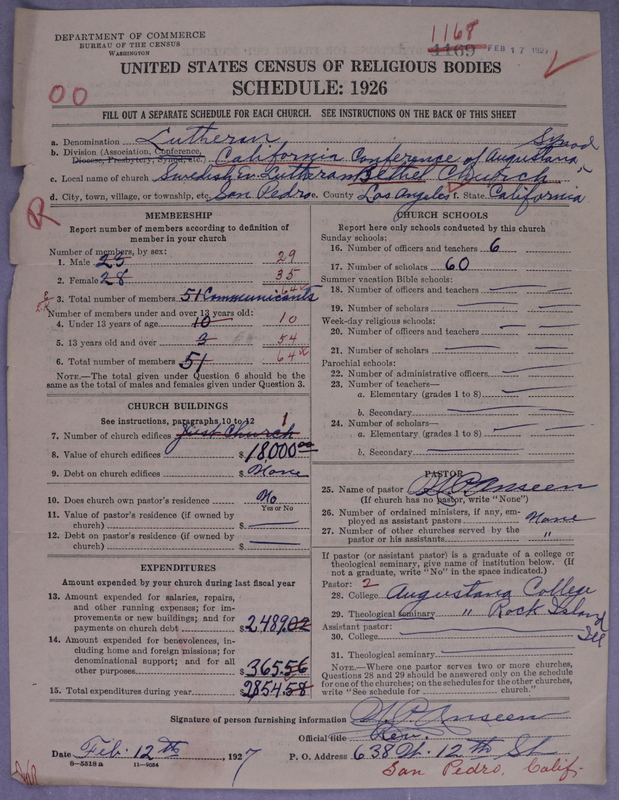 DEPARTMENT OF COMMERCE
BUREAU OF THE CENSUS
WASHINGTON
1168
1169
FEB 17 1927
UNITED STATES CENSUS OF RELIGIOUS BODIES
SCHEDULE: 1926
00
FILL OUT A SEPARATE SCHEDULE FOR EACH CHURCH. SEE INSTRUCTIONS ON THE BACK OF THIS SHEET
a. Denomination Lutheran
b. Division (Association, Conference, Diocese, Presbytery, Synod, etc.) California Conference of Augustana Synod
c. Local name of church Swedish Ev. Lutheran Bethel Church
d. City, town, village, or township, etc. San Pedro e. County Los Angeles f. State California
MEMBERSHIP
Report number of members according to definition of
member in your church
Number of members, by sex:
1. Male 23 29
2. Female 28 35
3. Total number of members 51 Communicants 64
Number of members under and over 13 years old:
4. Under 13 years of age 10 10
5. 13 years old and over 54
6. Total number of members 51 64
NOTE.—The total given under Question 6 should be
same as the total of males and females given under Question 3.
CHURCH BUILDINGS
See instructions, paragraphs 10 to 12
7. Number of church edifices Just Church 1
8. Value of church edifices $18,000.00
9. Debt on church edifices $ None
10. Does church own pastor's residence No
Yes or No
11. Value of pastor's residence (if owned by
church) $
12. Debt on pastor's residence (if owned by
church) $
EXPENDITURES
Amount expended by your church during last fiscal year
13. Amount expended for salaries, repairs,
and other running expenses; for im-
provements or new buildings; and for
payments on church debt $2489.02
14. Amount expended for benevolences, in-
cluding home and foreign missions; for
denominational support; and for all
other purposes $365.56
15. Total expenditures during year $2854.58
CHURCH SCHOOLS
Report here only schools conducted by this church
Sunday schools:
16. Number of officers and teachers 6
17. Number of scholars 60
Summer vacation Bible schools:
18. Number of officers and teachers
19. Number of scholars
Week-day religious schools:
20. Number of officers and teachers
21. Number of scholars
Parochial schools:
22. Number of administrative officers
23. Number of teachers—
a. Elementary (grades 1 to 8)
b. Secondary
24. Number of scholars—
a. Elementary (grades 1 to 8)
b. Secondary
PASTOR
25. Name of pastor Anseen
(If church has no pastor, write "None")
26. Number of ordained ministers, if any, em-
ployed as assistant pastors None
27. Number of other churches served by the
pastor or his assistants "
If pastor (or assistant pastor) is a graduate of a college or
theological seminary, give name of institution below. (If
not a graduate, write "No" in the space indicated.)
Pastor: 2
28. College Augustana College
29. Theological seminary " Rock Island Ill
Assistant pastor:
30. College
31. Theological seminary
NOTE.—Where one pastor serves two or more churches,
Questions 28 and 29 should be answered only on the schedule
for one of the churches; on the schedules for the other churches,
write "See schedule for church."
Signature of person furnishing information Anseen
Official title Rev.
Date Feb. 12th, 1927 P. O. Address 638 W. 12th St
San Pedro, Calif.
8-5518 a 11-9054